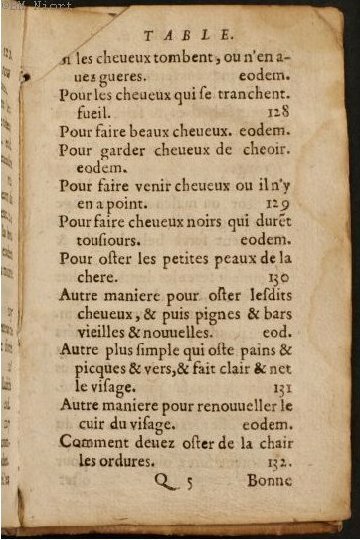 TABLE.
si les cheueux tombent, ou n'en a-
ues gueres. eodem.
Pour les cheueux qui se tranchent.
fueil. 128
Pour faire beaux cheueux. eodem.
Pour garder cheueux de cheoir.
eodem.
Pour faire venir cheueux ou il n'y
en a point. 129
Pour faire cheueux noirs qui durẽt
tousiours. eodem.
Pour oster les petites peaux de la
chere. 130
Autre maniere pour oster lesdits
cheueux, & puis pignes & bars
vieilles & nouuelles. eod.
Autre plus simple qui oste pains &
picques & vers, & fait clair & net
le visage. 131
Autre maniere pour renouueller le
cuir du visage. eodem.
Comment deuez oster de la chair
les ordures. 132.
Q 5 Bonne